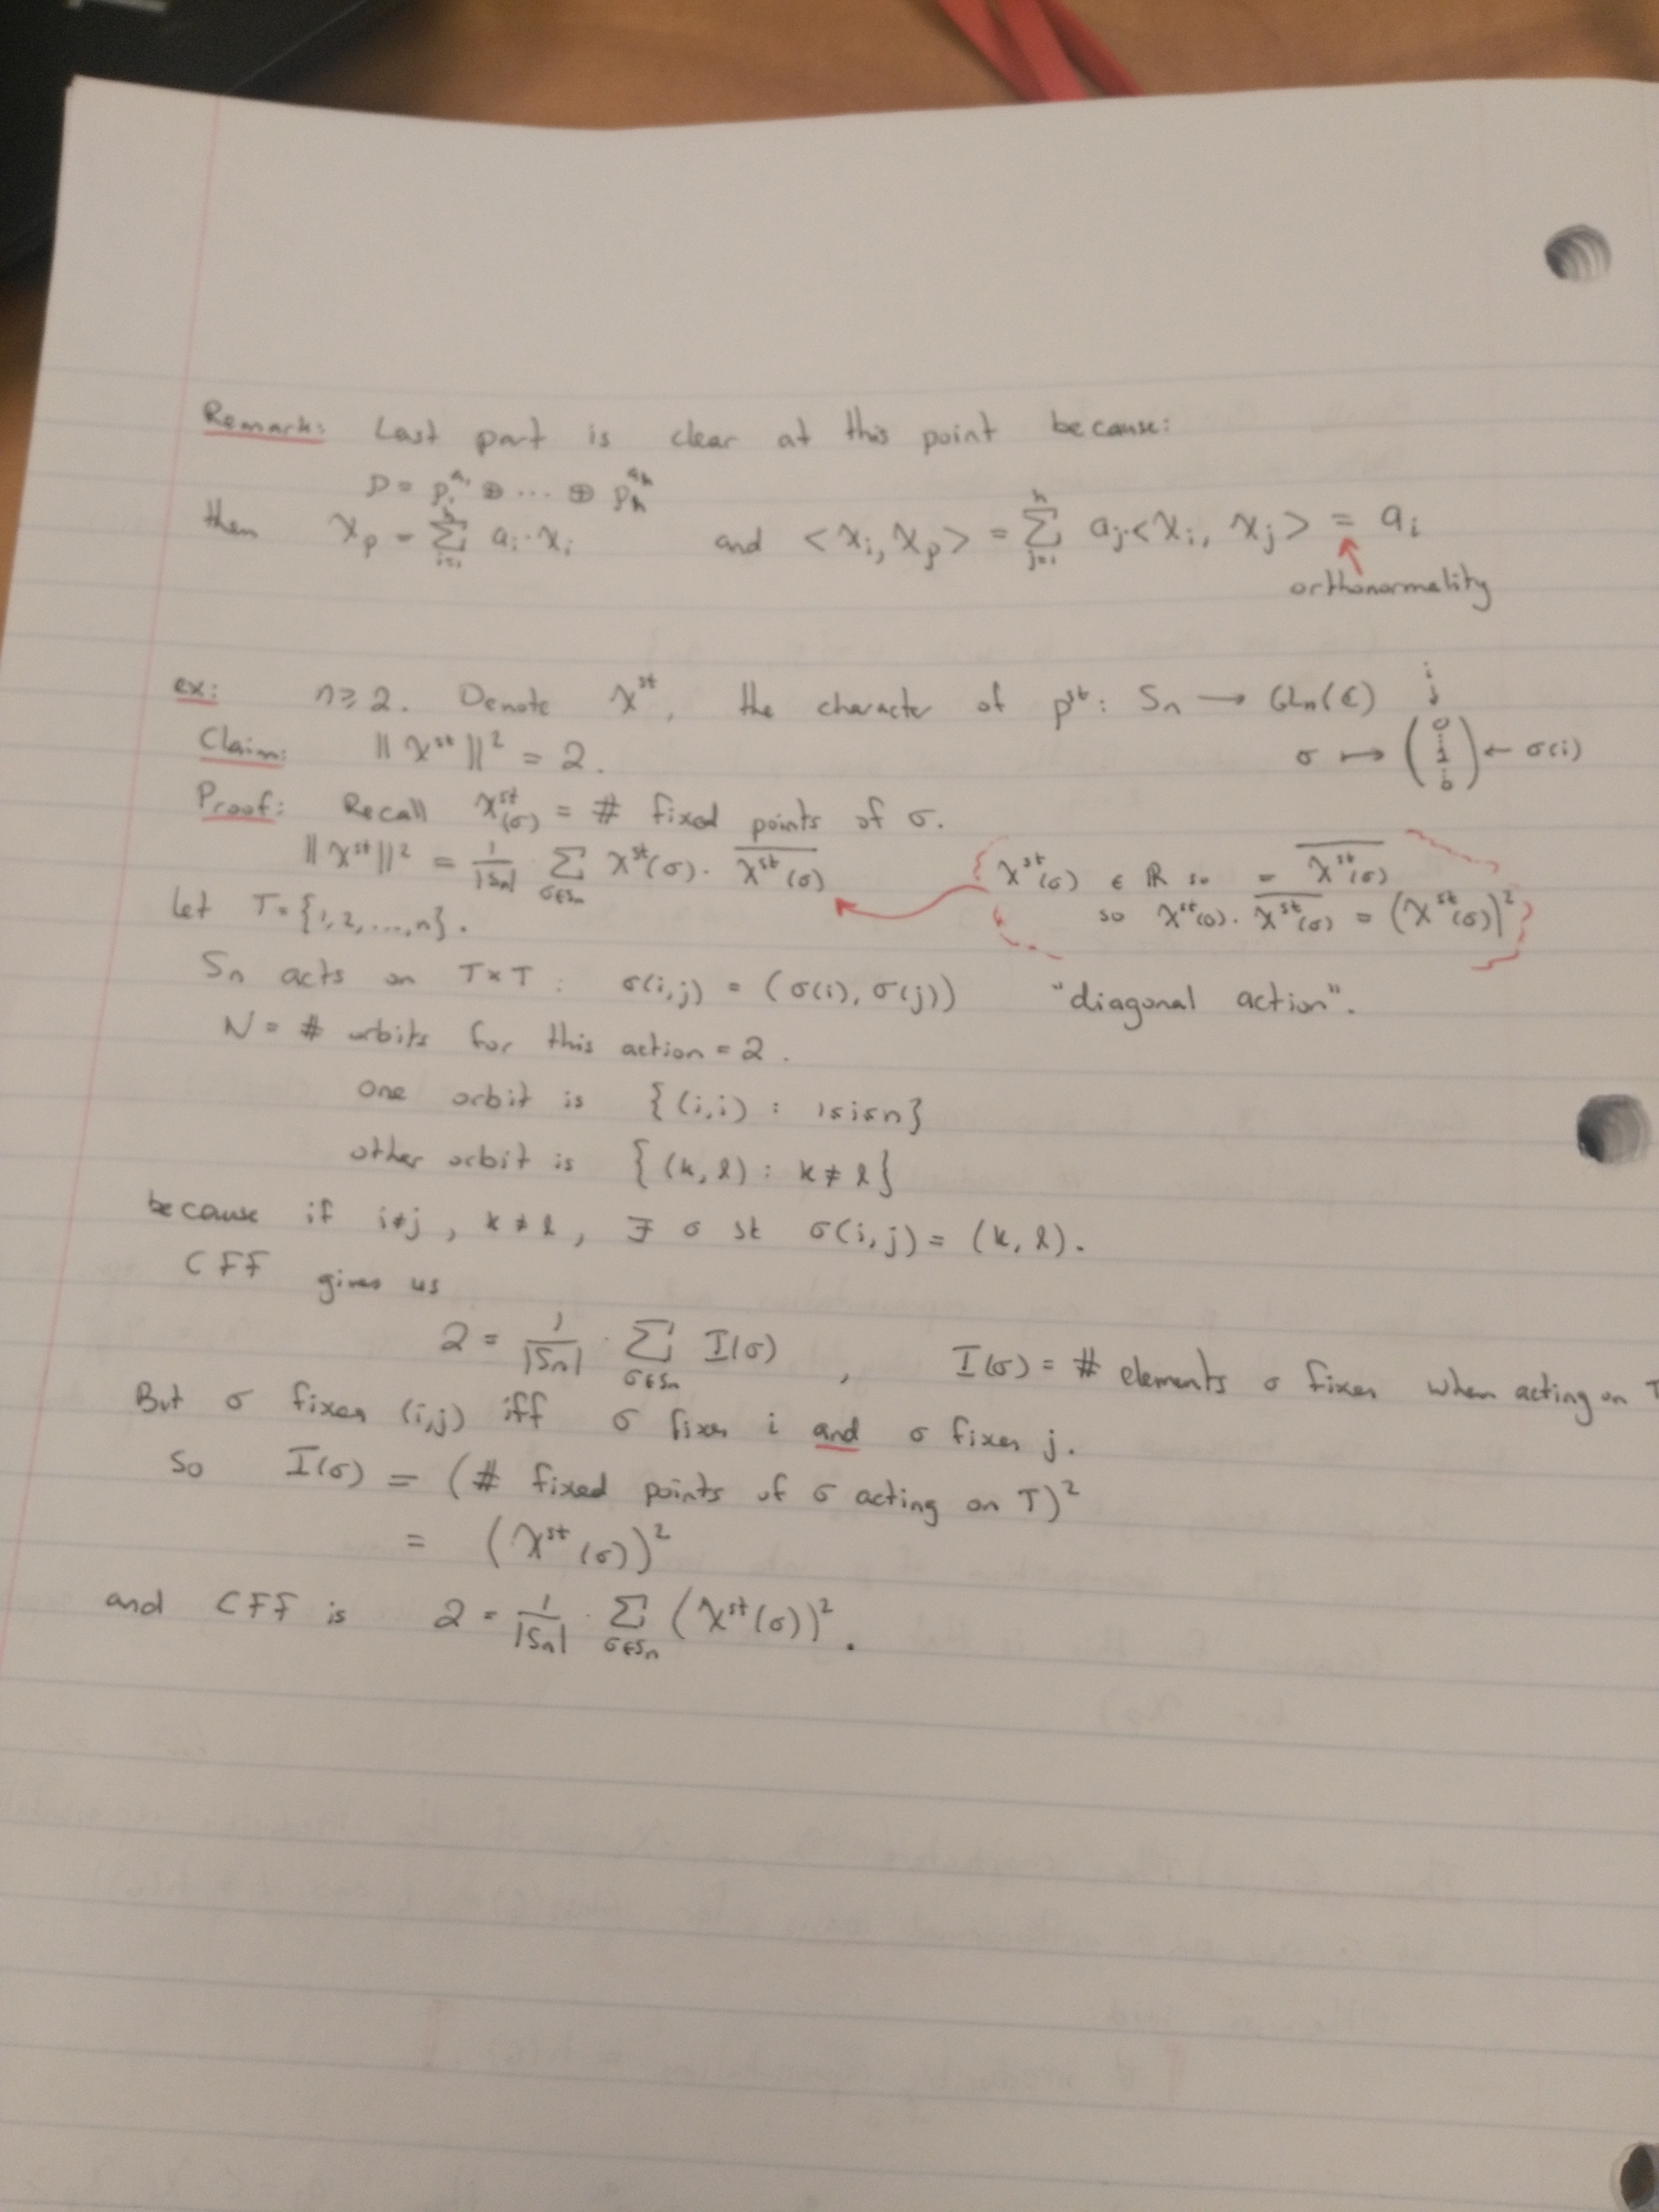 Remark: Last part is clear at this point because:
ρ = ρ₁^a₁ ⊕ ... ⊕ ρₕ^aₕ
then χ_ρ = Σ_{i=1}^{h} aᵢ·χᵢ and <χᵢ, χ_ρ> = Σ_{j=1}^{h} aⱼ·<χᵢ, χⱼ> = aᵢ
orthonormality
ex: n ≥ 2. Denote χ^st, the character of ρ^st: Sₙ → GLₙ(ℂ) i ↓
Claim: ‖χ^st‖² = 2. σ ↦ (0 ⋮ 1 ⋮ 0) ← σ(i)
Proof: Recall χ^st(σ) = # fixed points of σ.
‖χ^st‖² = 1/|Sₙ| · Σ_{σ∈Sₙ} χ^st(σ) · \overline{χ^st(σ)} { χ^st(σ) ∈ ℝ so = \overline{χ^st(σ)}
so χ^st(σ) · \overline{χ^st(σ)} = (χ^st(σ))² }
Let T = {1, 2, ..., n}.
Sₙ acts on T×T : σ(i,j) = (σ(i), σ(j)) "diagonal action".
N = # orbits for this action = 2.
one orbit is {(i,i) : 1≤i≤n}
other orbit is {(k, l) : k ≠ l}
because if i≠j, k ≠ l, ∃ σ st σ(i,j) = (k, l).
CFF gives us
2 = 1/|Sₙ| · Σ_{σ∈Sₙ} I(σ) , I(σ) = # elements σ fixes when acting on T
But σ fixes (i,j) iff σ fixes i and σ fixes j.
So I(σ) = (# fixed points of σ acting on T)²
= (χ^st(σ))²
and CFF is 2 = 1/|Sₙ| · Σ_{σ∈Sₙ} (χ^st(σ))².